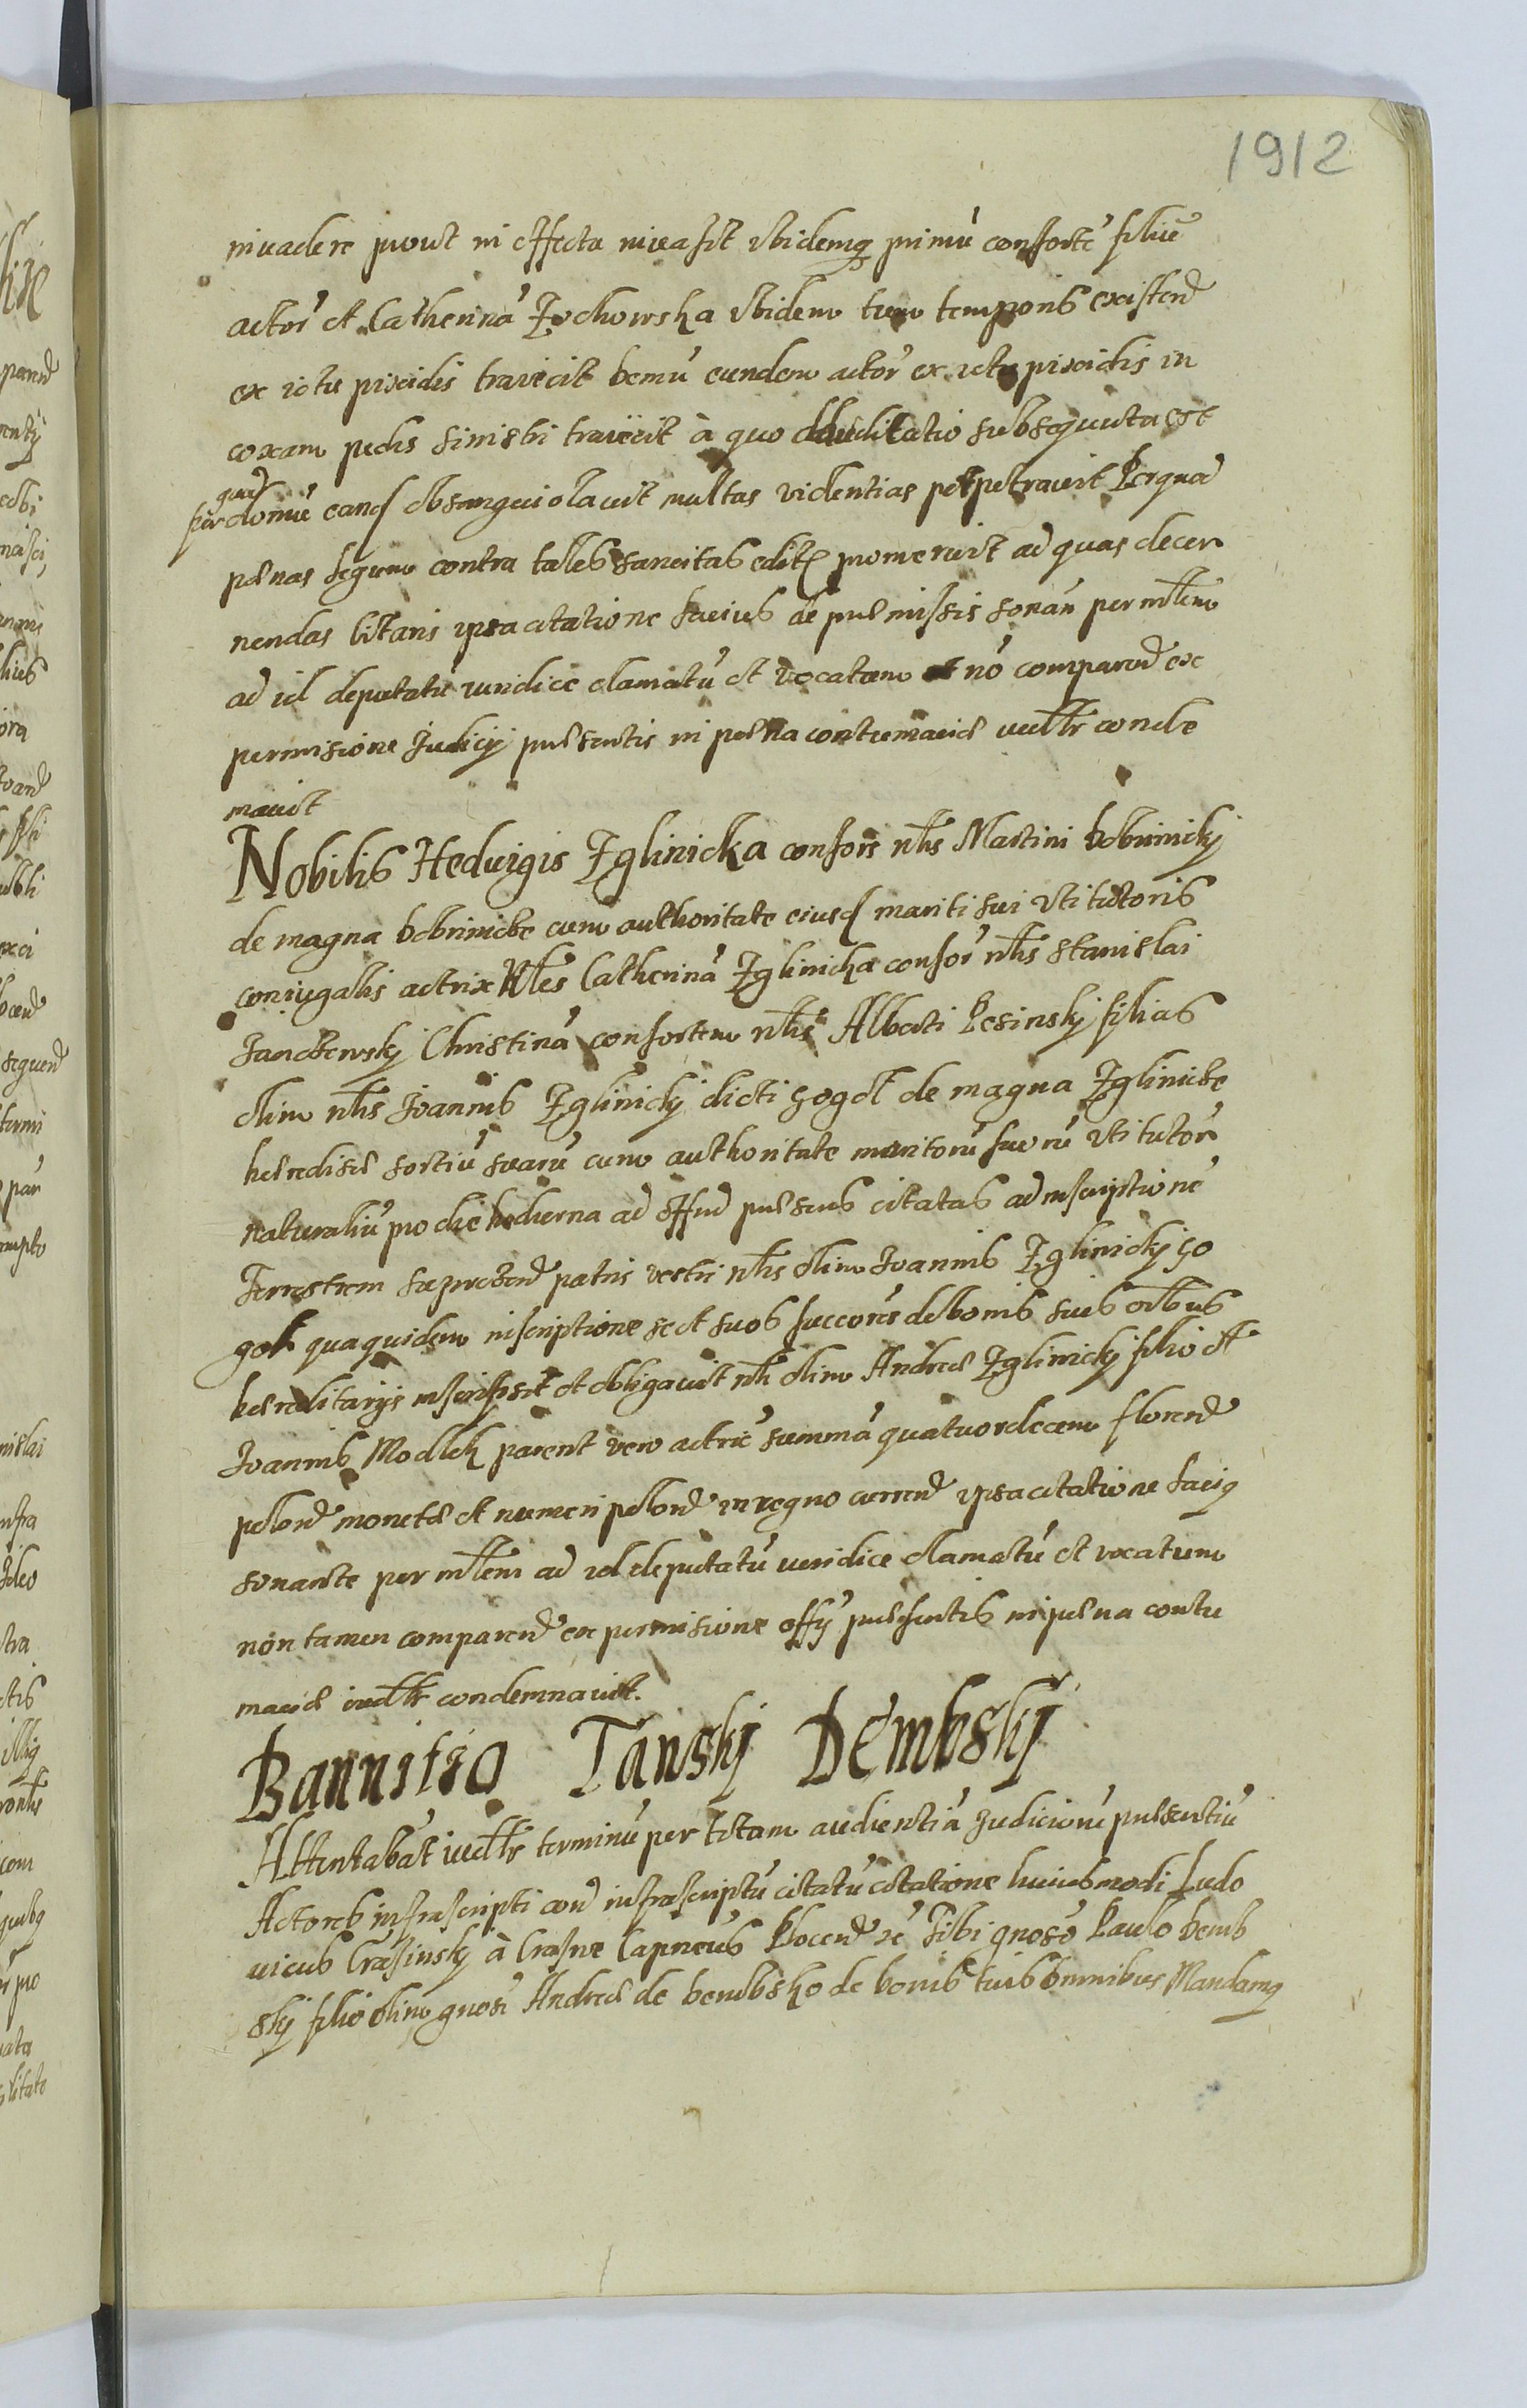 1912
inuadere prout in effectu inuasit ibidemq primũ consortẽ filiũ
actor et Catherinã Zochowska ibidem tunc temporis existend
ex ictu pixidis traiecit demũ eundem actor ex ictu pixidis in
coxam pedis sinistri traiecit à quo debilitatio subsequuta est
quas
domũ eand obsangui olauit multas violentias perpetrauit Per quod
pœnas legum contra tales sancitas edit promeruit ad quas decer
nendas litaris ipsa citatione latius de præmissis sonan per mlem
ad id deputatũ iuridice clamatũ et vocatum nõ comparend ex
permisione Judicij præsentis in pœna contumaciæ iudlr conde
mnauit
Nobilis Heduigis Zglinicka consors nlis Martini bobrinicky
de magna bobrinicke cum authoritate eiusd mariti sui vti tutoris
coniugalis actrix Nles Catherinã Zglinicka consor nlis Stanislai
Janczewsky Christinã consortem nlis Alberti Lesinsky filias
olim nlis Joannis Zglinicky dicti Gogol de magna Zglinicke
hæredisæ sortiũ suarũ cum authoritate maritorũ suorũ vti tutor
naturaliũ pro die hodierna ad offm præsens citatas ad inscriptionẽ
Terrestrem patris vestri nlis olim Joannis Zglinicky Go
gol qua quidem inscriptione se et suos succores de bonis suis oibus
hæreditarijs inscripsit et obligauit nli olim Andreæ Zglinicky filio
Joannis Modlek parent vero actric summã quatuordecem floren
polon monetæ et numeri polon in regno curren ipsa citatione laciq
sonante per mlem ad id deputatũ iuridice clamatũ et vocatum
non tamen comparend ex permisione offy præsentis in pœna contu
maciæ iudlr condemnauit.
Bannitio Tansky Dembsky
Attentabat iudlr terminũ per totam audientiã Judiciorũ præsentiũ
Actoreb infrascripti con infrascriptũ citatũ citatione huiusmodi Ludo
uicus Crasinsky à Crasne Capneus Plocen Tibi gnoso Paulo Demb
sky filio olim gnosi Andreæ de Dembsko de bonis tuis omnibus Mandamq